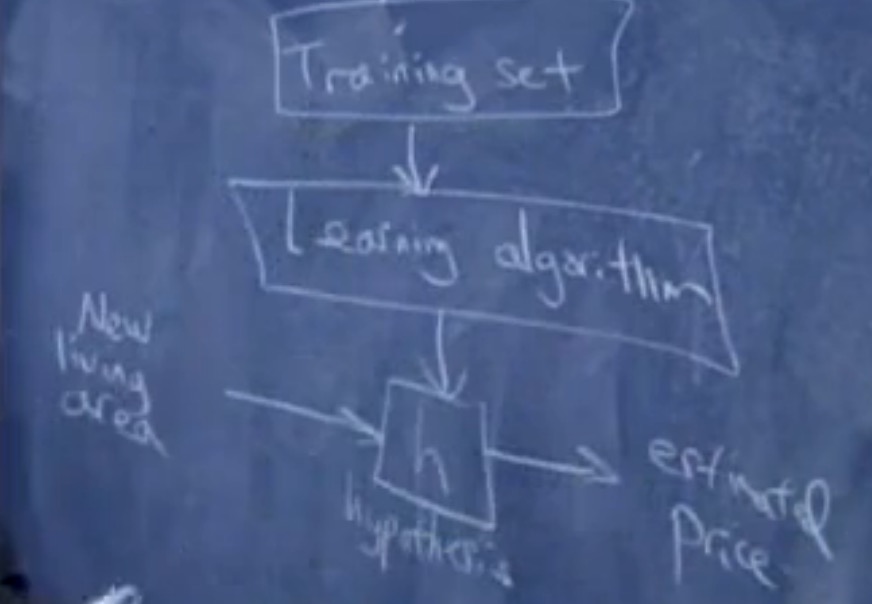 Training set
Learning algorithm
New
living
area
h
hypothesis
estimated
price